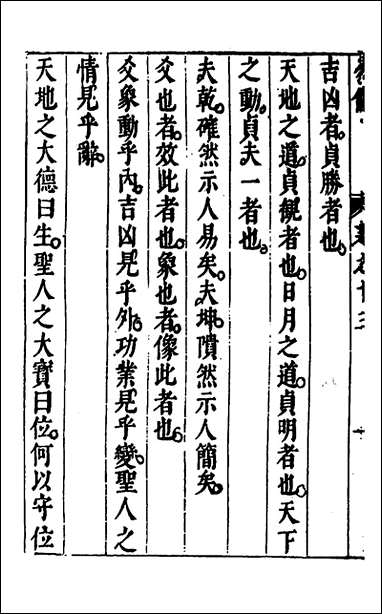 吉凶者貞勝者也
天地之道貞觀者也日月之道貞明者也天下
之動貞夫一者也
夫乾確然示人易矣夫坤隤然示人簡矣
爻也者效此者也象也者像此者也
爻象動乎內吉凶見乎外功業見乎變聖人之
情見乎辭
天地之大德曰生聖人之大寶曰位何以守位